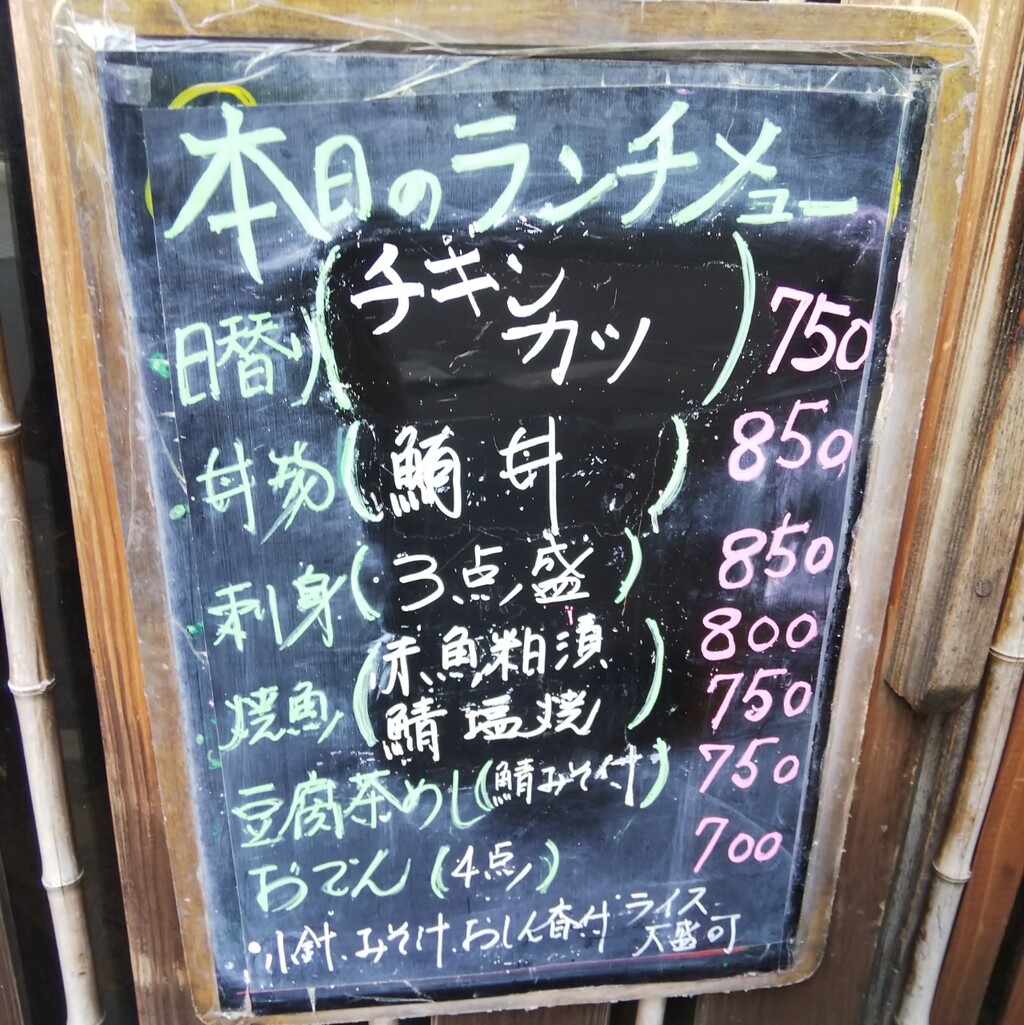 本日のランチメュー
日替り(チキンカツ) 750
丼物(鮪丼) 850
刺身(3点盛) 850
焼魚(赤魚粕漬 800
鯖塩焼) 750
豆腐茶めし(鯖みそ付) 750
おでん(4点) 700
小鉢.みそ汁.おしん香付 ライス
大盛可